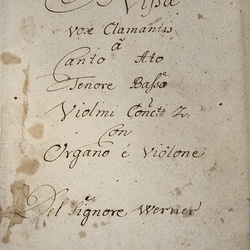 Missa
vox Clamantis
à
Canto Alto
Tenore Basso
Violini Conc:ti 2.
Con
Organo è Violone
Del Signore Werner